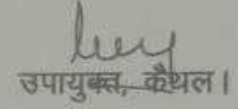 उपायुक्त, कैथल।